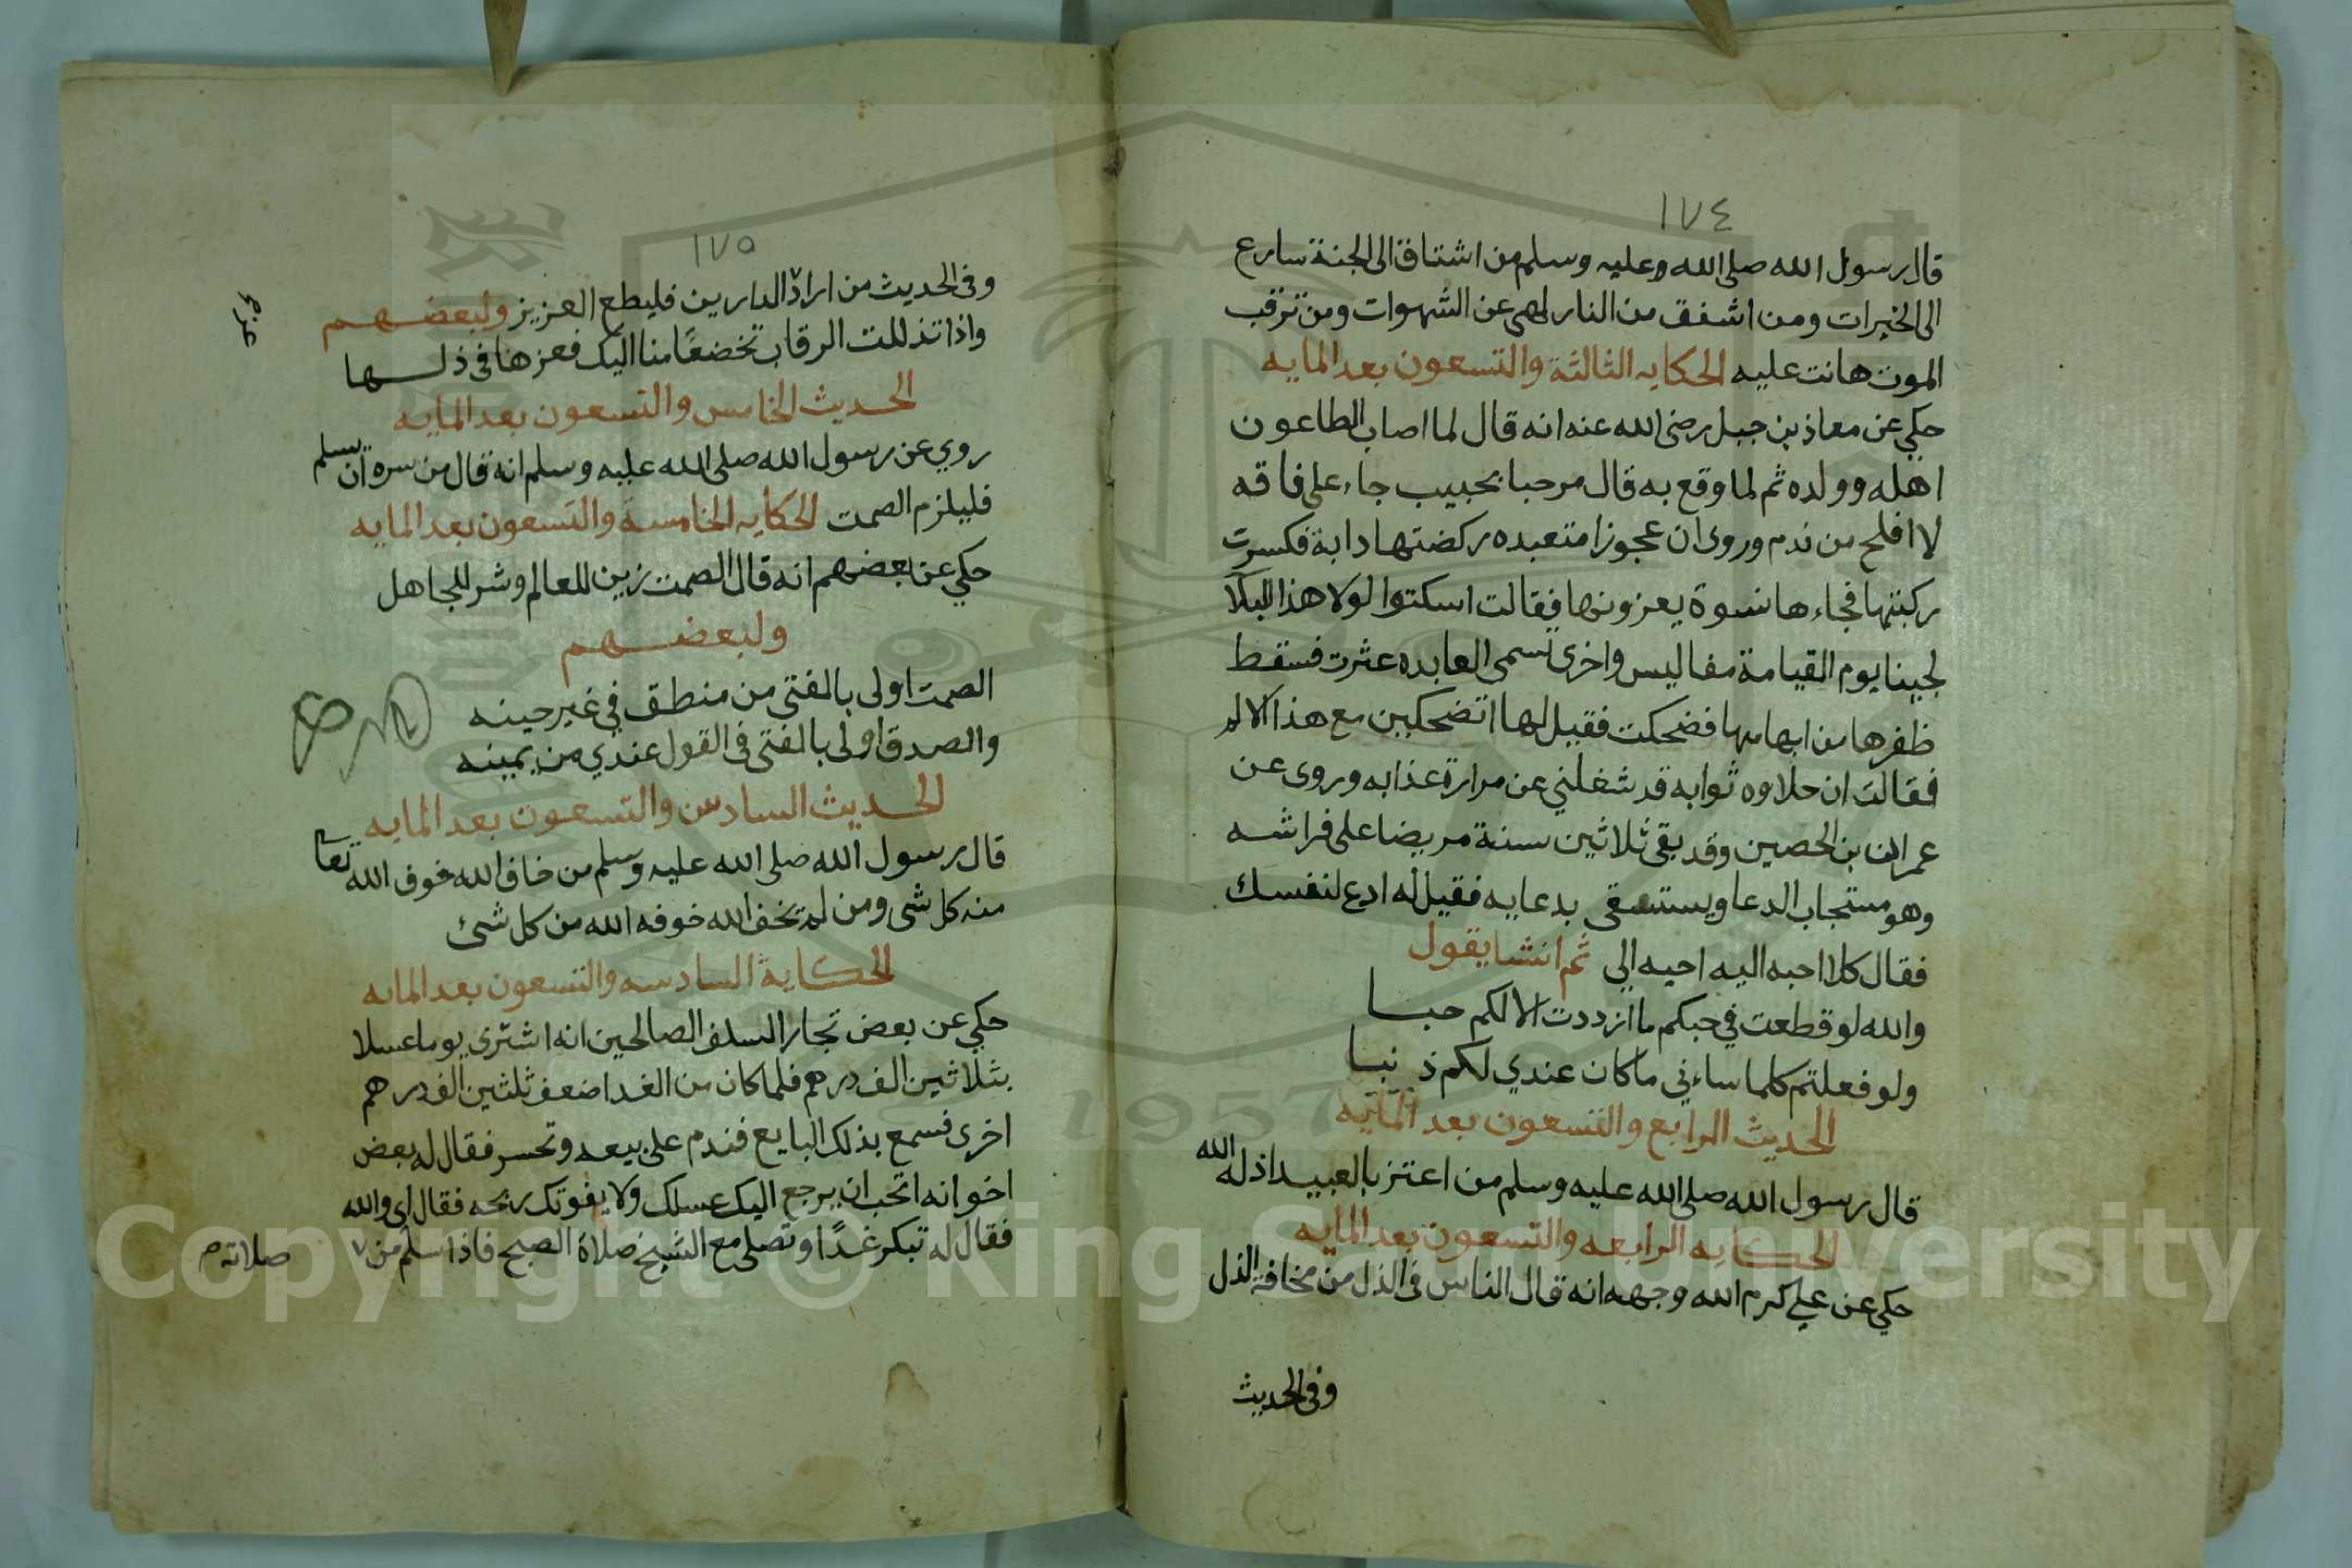 ١٧٤
قال رسول الله صلى الله وعليه وسلم من اشتاق الى الجنة سارع
الى الخيرات ومن اشفق من النار لهى عن الشهوات ومن ترقب
الموت هانت عليه الحكايه الثالثة والتسعون بعد المايه
حكي عن معاذ بن جبل رضى الله عنه انه قال لما اصاب الطاعون
اهله وولده ثم لما وقع به قال مرحبا بحبيب جاء على فاقه
لا افلح من ندم وروى ان عجوزا متعبده ركضتها دابة فكسرت
ركبتها فجاءها نسوة يعزونها فقالت اسكتوا لولا هذا البلا
لجينا يوم القيامة مفاليس واخرى تسمى العابده عثرت فسقط
ظفرها من ابهامها فضحكت فقيل لها اتضحكين مع هذا الالم
فقالت ان حلاوه ثوابه قد شغلني عن مرارة عذابه وروى عن
عمران بن الحصين وقد بقى ثلاثين سنة مريضا على فراشه
وهو مستجاب الدعا ويستسقى بدعايه فقيل له ادع لنفسك
فقال كلا احبه اليه احبه الي ثم انشا يقول
والله لو قطعت في حبكم ما ازددت الا لكم حبا
ولو فعلتم كلما ساءني ما كان عندي لكم ذنبا
الحديث الرابع والتسعون بعد المائيه
قال رسول الله صلى الله عليه وسلم من اعتز بالعبيد اذله الله
الحكايه الرابعه والتسعون بعد المايه
حكي عن علي كرم الله وجهه انه قال الناس فى الذل من مخافة الذل
وفى الحديث
١٧٥
وفى الحديث من اراد الدارين فليطع العزيز ولبعضهم
عز
واذا تذللت الرقاب تخضعًا منا اليك فعزها فى ذلها
الحديث الخامس والتسعون بعد المايه
روي عن رسول الله صلى الله عليه وسلم انه قال من سره ان يسلم
فليلزم الصمت الحكايه الخامسة والتسعون بعد المايه
حكي عن بعضهم انه قال الصمت زين للعالم وشر للجاهل
ولبعضهم
الصمت اولى بالفتى من منطق في غير حينه
والصدق اولى بالفتى فى القول عندي من يمينه
الحديث السادس والتسعون بعد المايه
قال رسول الله صلى الله عليه وسلم من خاف الله خوف الله تعا
منه كل شى ومن لم يخف الله خوفه الله من كل شئ
الحكاية السادسه والتسعون بعد المايه
حكي عن بعض تجار السلف الصالحين انه اشترى يوما عسلا
بثلاثين الف درهم فلما كان من الغد اضعف ثلثين الف درهم
اخرى فسمع بذلك البايع فندم على بيعه وتحسر فقال له بعض
اخوانه اتحب ان يرجع اليك عسلك ولا يفوتك ربحه فقال اى والله
فقال له تبكر غدًا وتصلى مع الشيخ صلاة الصبح فاذا سلم من صلاته
Copyright © King Saud University
1957